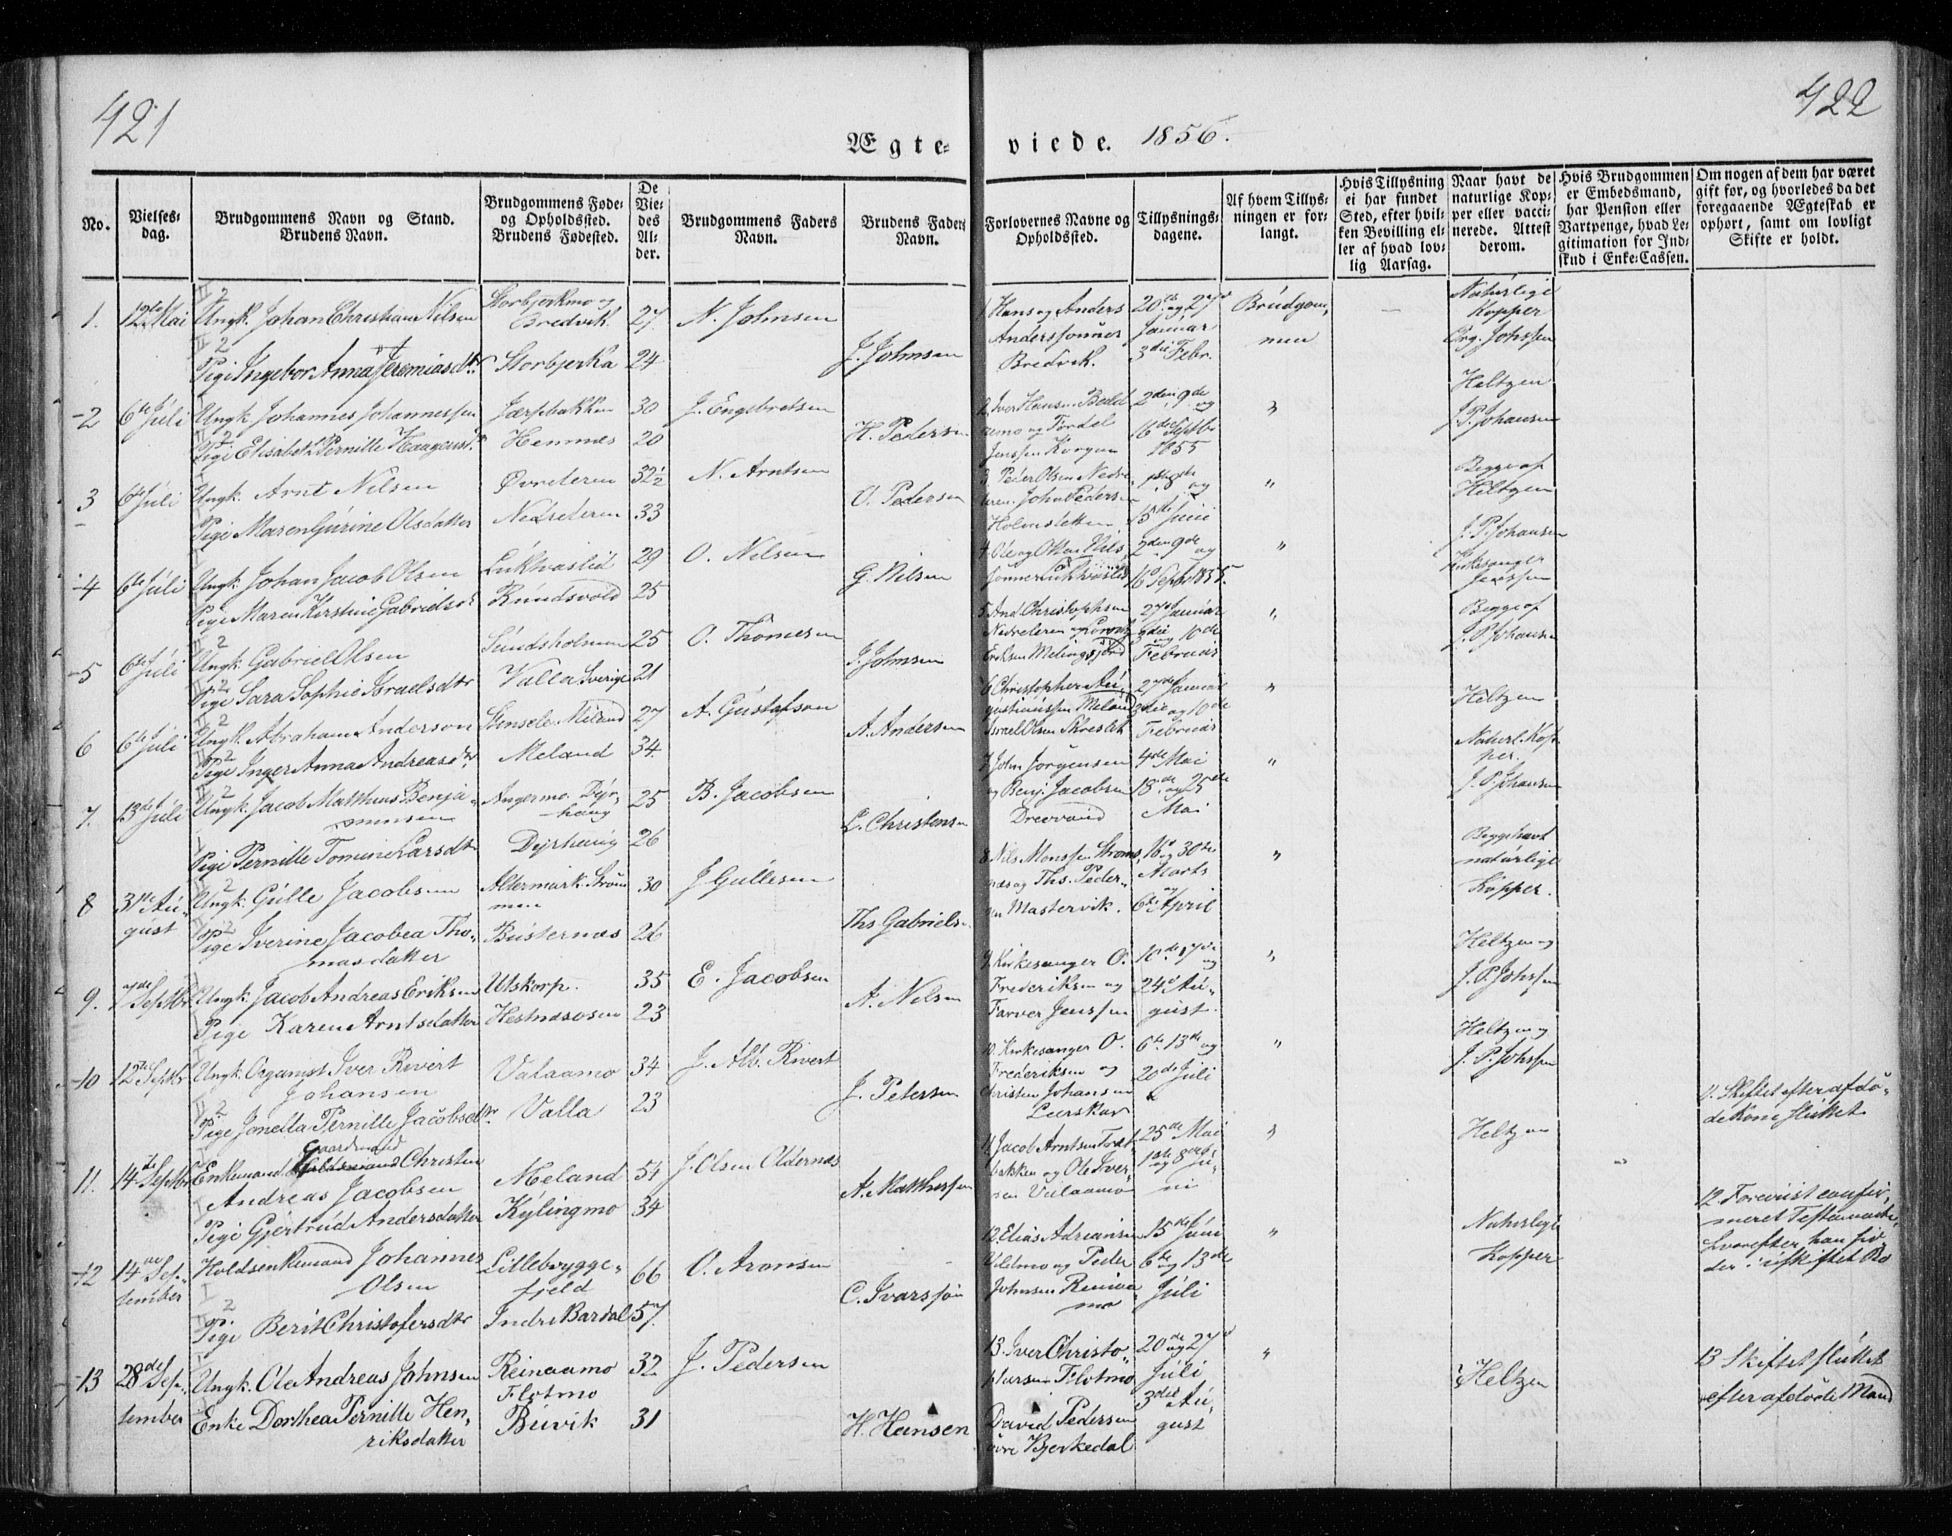 421
422
Ægte-viede. 1856.
No.
Vielses-dag.
Brudgommens Navn og Stand.
Brudens Navn.
Brudgommens Føde- og Opholdssted.
Brudens Fødested.
De Viedes Alder.
Brudgommens Faders Navn.
Brudens Faders Navn.
Forlovernes Navne og Opholdssted.
Tillysnings-dagene.
Af hvem Tillysningen er forlangt.
Hvis Tillysning ei har fundet Sted, efter hvilken Bevilling eller af hvad lovlig Aarsag.
Naar havt de naturlige Kopper eller vaccinerede. Attest derom.
Hvis Brudgommen er Embedsmand, har Pension eller Vartpenge, hvad Legitimation for Indskud i Enke-Cassen.
Om nogen af dem har været gift før, og hvorledes da det foregaaende Ægteskab er ophørt, samt om lovligt Skifte er holdt.
1. 12te Mai Ungk. Johan Christian Nilsen Storbjerkmo og Bredvik 27 N. Johnsen
Pige Ingebor Anna Jeremiasdtr Storbjerka 24 J. Johnsen
1, Hans og Anders Anderssønner Bredvik. 20de og 27de Januar 3die Febr. Brudgommen Naturlige Kopper Org. Johssen
2 6te Juli Ungk. Johannes Johannessen Jærpbakken 30 J. Engebretsen
Pige Elisabet Pernille Haagensdtr Hemnes 20 H. Pedersen
2, Iver Hansen og Jenssen Korgen 2den 9de og 16de Septbr 1855 Heltzen J. P. Johansen
3 6te Juli Ungk. Arnt Nilsen Øvreleren 32½ N. Arntsen
Pige Maren Gurine Olsdatter Nedreleren 33 O. Pedersen
3 Peder Olsen Nedreleren. John Pedersen Holmsletten 1ste 8de og 15de Juni " Begge af Heltzen
4 6te Juli Ungk. Johan Jacob Olsen Luktvaslid 29 O. Nilsen
Pige Maren Kirstine Gabrielsdr Rundsvold 25 G. Nilsen
4 Ole og Ottar Nilssønner 2den 9de og 16de Septbr 1855. " J. P. Johansen Kirkesanger Jenssen
5 6te Juli Ungk. Gabriel Olsen Sundsholmen 25 O. Thomesen
Pige Sara Sophie Israelsdtr Valla Sverige 21 J. Johnsen
5 And. Christophsen Nedreleren Eriksen 27de Januar 3die og 10de Februar " Begge af J. P. Johansen
6 6te Juli Ungk. Abraham Anderson Stensele Meland 27 A. Gustafson
Pige Inger Anna Andreasdtr. Meland 34 A. Andersen
6 Christopher Augustinussen Meland Israel Olsen 27de Januar 3die og 10de Februar " Heltzen
7. 13de Juli Ungk. Jacob Matthias Benjaminsen Angermo. Dyrhaug 25 B. Jacobsen
Pige Pernille Tomine Larsdtr Dyrhaug 26 L. Christensen
7 John Jørgensen og Benj. Jacobsen Drevvand 4de Mai 18de og 25de Mai " Naturl. Kopper. J. P. Johansen
8 31te August Ungk. Gulle Jacobsen Altermark. Strømmen 30 J. Gullesen
Pige Iverine Jacobea Thomasdatter Busternes 26 Ths Gabrielsen
8. Nils Monssen Strømsnæs og Ths. Pedersen Mastervik. 16de og 30te Marts og 6te April " Begge havt naturlige Kopper.
9. 7de Septbr Ungk. Jacob Andreas Eriksen Utskorp. 35 E. Jacobsen
Pige Karen Arntsdatter Hestnæsosen 23 A. Nilsen
9. Kirkesanger O. Frederiksen og Farver Jenssen 10de 17de og 24de August. " Heltzen og J. P. Johssen
10 12te Septbr Ungk. Organist Iver Rivert Johansen Valaamo 34 J. Alb. Rivert
Pige Jonetta Pernille Jacobsdtr Valla 23 J. Petersen
10. Kirkesanger O. Frederiksen og Christen Johansen Leerskar 6te 13de og 20de Juli " Heltzen og J. P. Johssen
11. 14de Septbr Enkemand Gaardmand Christen Andreas Jacobsen Meland 54 J. Olsen Oldernæs
Pige Gjertrud Andersdatter Kylingmo 34 A. Matthessen
11 Jacob Arntsen og Ole Iversen 25de Mai 1ste og 8de Juni " Heltzen
11. Skiftet efter afdøde Kone sluttet
12 14de September Enkemand Johannes Olsen Lillebryggefjeld 66 O. Aronsen
Pige Berit Christofersdtr Indre Bardal 57. C. Ivarssøn
12. Elias Adriansen og Peder Johnsen 15de Juni 6te og 13de Juli " Naturlige Kopper
12. Forevist confirmeret Testamente, hvorefter han sidder i uskiftet Bo
13 28de September Ungk. Ole Andreas Johnsen Reinaamo Flotmo 32 J. Pedersen
Enke Dorthea Pernille Henriksdatter Buvik 31 H. Hansen
13. Iver Christophersen Flotmo David Pedersen øvre Bjerkedal 20de og 27de Juli 3die August " Heltzen
13 Skiftet sluttet efter afdøde Mand